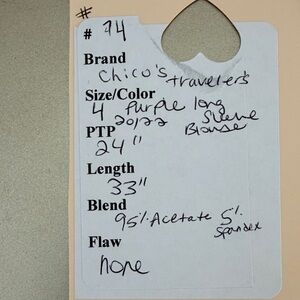 #
# 74
Brand
Chico's travelers
Size/Color
4 Purple long
20/22 Sleeve
Blouse
PTP
24"
Length
33"
Blend
95% Acetate 5%
Spandex
Flaw
none